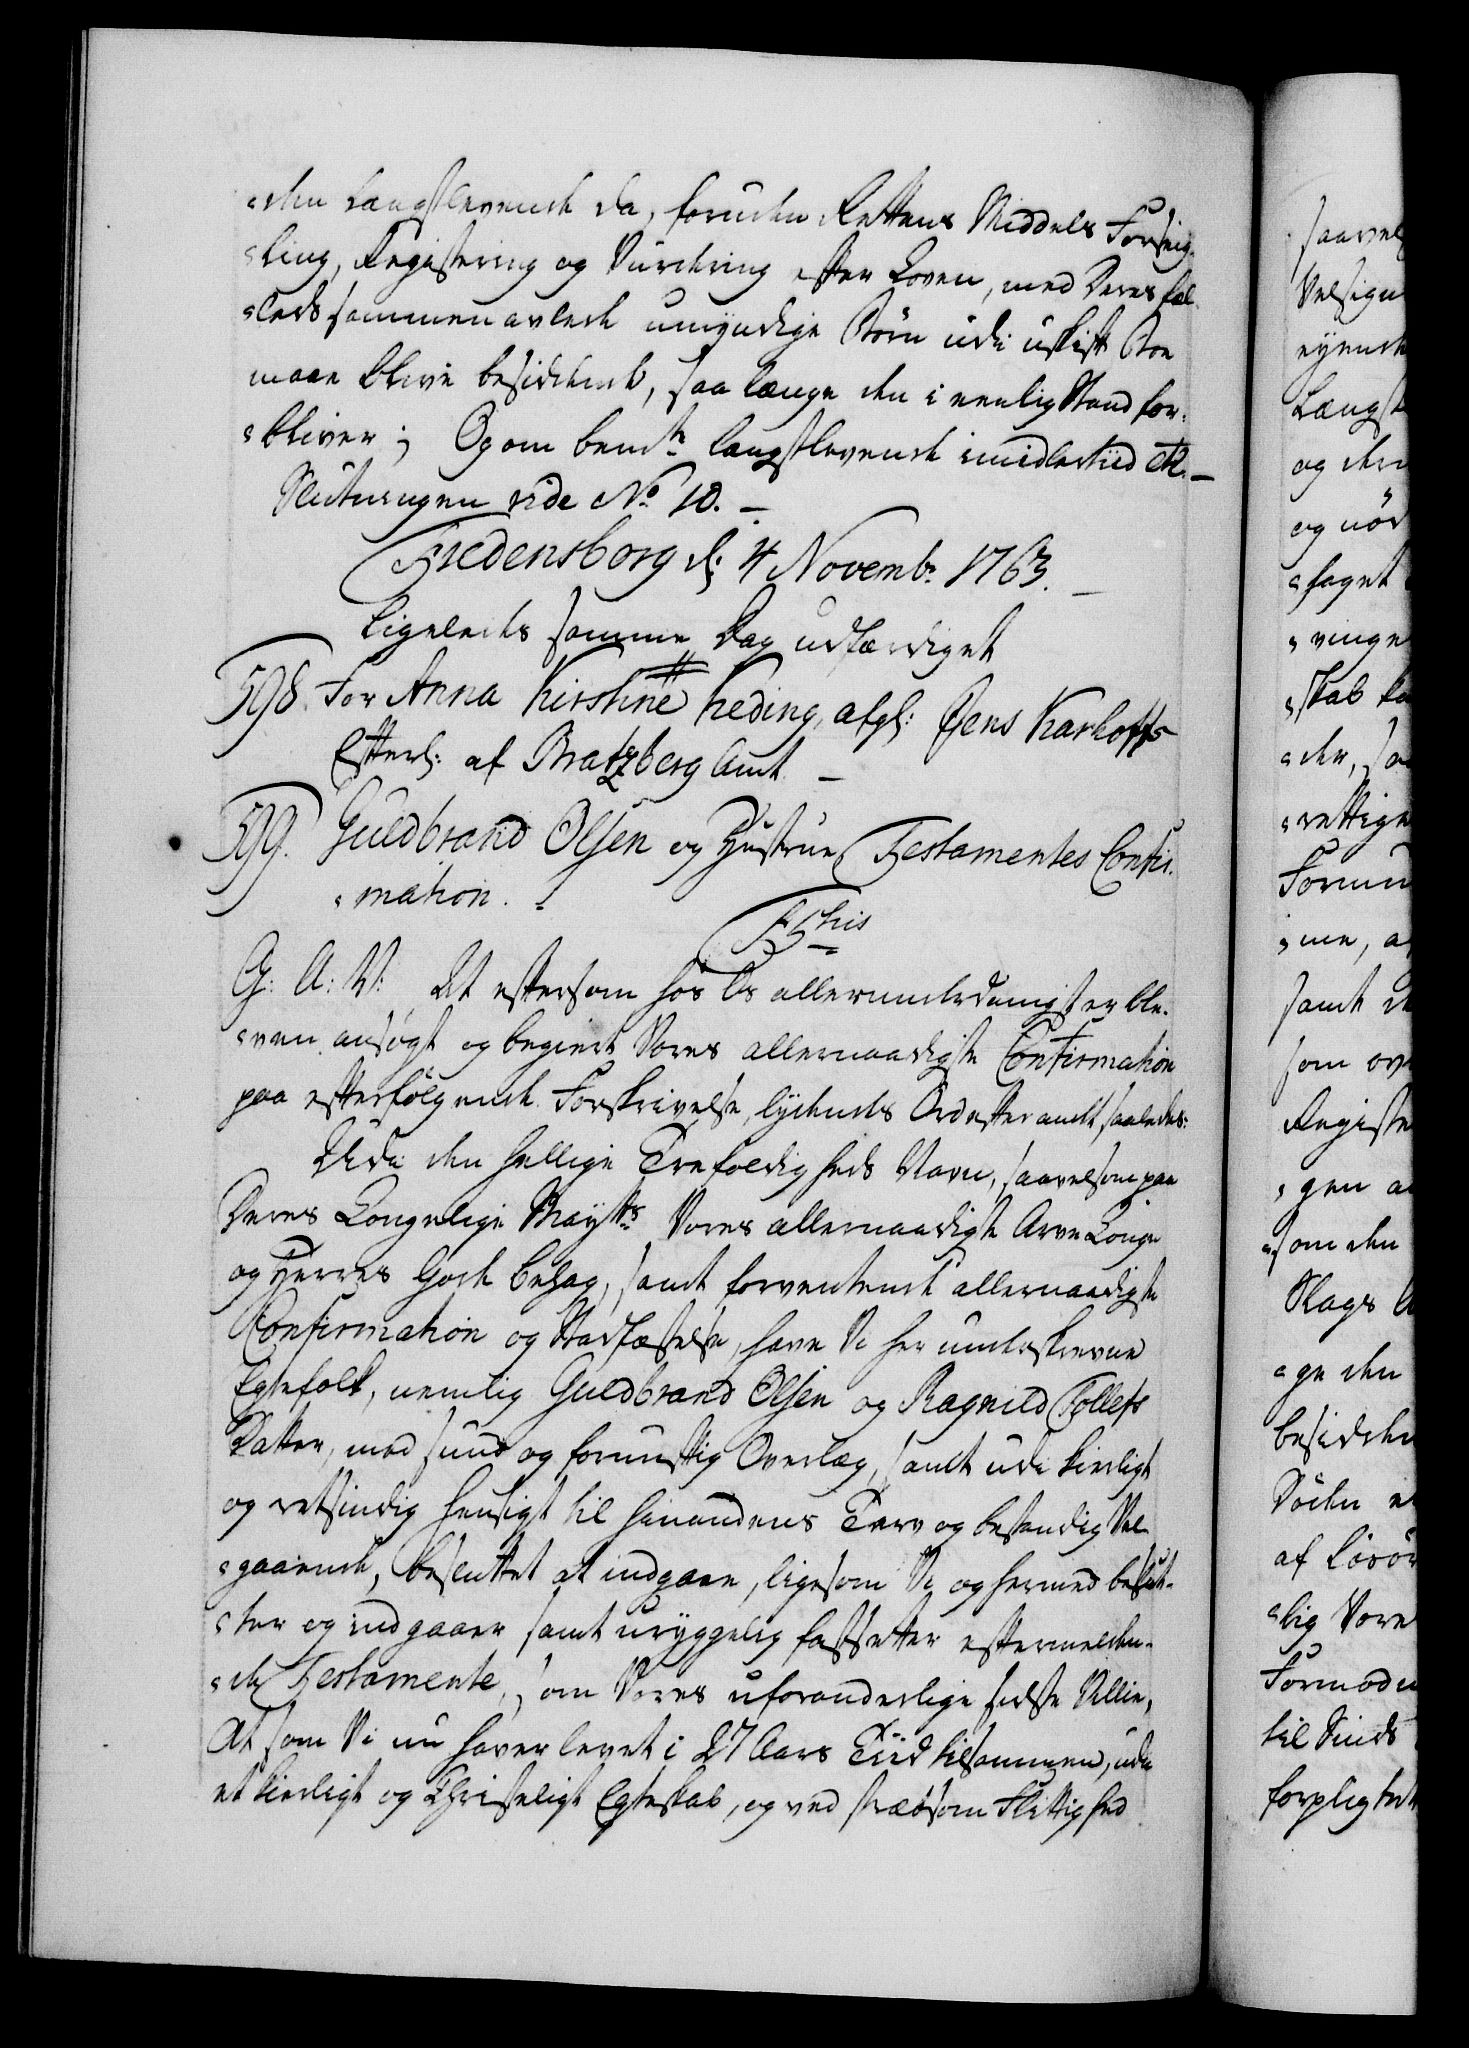 den Længstlevende da, foruden Rettens Middels Forseig-
ling, Registering og Vurdering efter Loven, med Deres fæl-
leds sammenavlede umyndige Börn udi uskift Boe
maae blive besiddende, saa længe den i eenlig Stand for-
bliver; Og om bemte længstlevende imidlertiid etc.
Slutningen vide No 10.
Fredensborg d: 4 Novembr 1763.
Ligeleedes samme Dag udfærdiget
598. For Anna Kirstine Keding, afgl: Jens Karhoffs
Efterl: af Bratzberg Amt.
599. Guldbrand Olsen og Hustrue Testamentes Confir-
mation.
F5this
G: A: V: At eftersom hos Os allerunderdanigst er ble-
ven ansögt og begiert Vores allernaadigste Confirmation
paa efterfölgende Forskrivelse, lydende Ord efter andet saaledes:
Udi den hellige Trefoldigheds Navn, saavelsom paa
Deres Kongelige Maytts Vores allernaadigste Arve Konge
og Herres Gode behag, samt forventende allernaadigste
Confirmation og Stadfæstelse, have Vi her underskrevne
Egtefolk, nemlig Guldbrand Olsen og Ragnild Tollefs
Datter, med sund og fornuftig Overlæg, samt udi kierligt
og retsindig hensigt til hinandens Tarv og bestandig Vel-
gaaende, besluttet at indgaae, ligesom Vi og hermed beslut-
ter og indgaaer samt uryggelig fastsetter eftermelden-
de Testamente, som Vores uforanderlige sidste Villie,
At som Vi nu haver levet i 27 Aars Tiid tilsammen, udi
et kierligt og Christeligt Egteskab, og ved stræbsom Flittighed
saavel
Velsign
eyende
Længst
og den
og nöd
faget
vinge
skab
der, saa
rettige
Formu
me, a
samt
som
Registe
gen
som den
Slags
ge den
besidde
Döden
af
lig Vore
Formod
til Sinds
forpligte